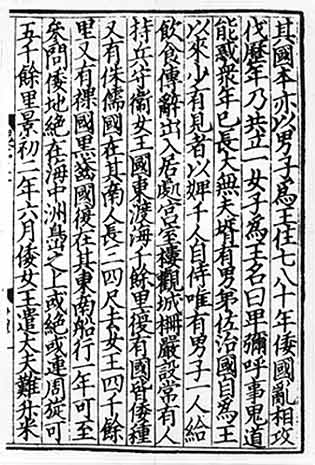 其國本亦以男子爲王住七八十年倭國亂相攻
伐歷年乃共立一女子爲王名曰卑彌呼事鬼道
能惑衆年已長大無夫壻有男弟佐治國自爲王
以來少有見者以婢千人自侍唯有男子一人給
飲食傳辭出入居處宮室樓觀城柵嚴設常有人
持兵守衞女王國東渡海千餘里復有國皆倭種
又有侏儒國在其南人長三四尺去女王四千餘
里又有裸國黑齒國復在其東南船行一年可至
參問倭地絶在海中洲島之上或絶或連周旋可
五千餘里景初二年六月倭女王遣大夫難升米